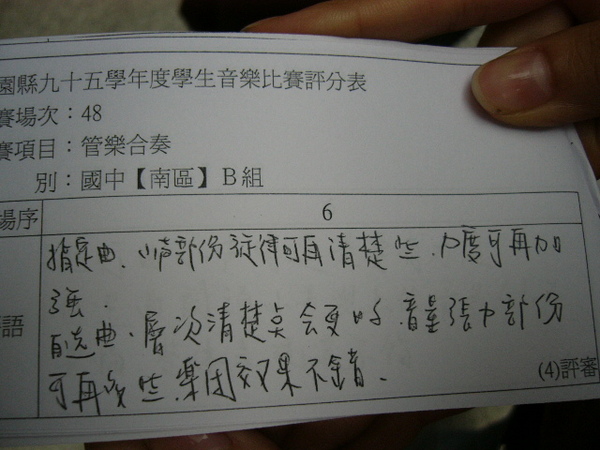 園縣九十五學年度學生音樂比賽評分表
賽場次：48
賽項目：管樂合奏
別：國中【南區】B組
場序 6
指定曲、小声部份旋律可再清楚些、力度可再加
強．
語
自选曲．層次清楚点会更好．音量張力部份
可再 些．樂团效果不錯、
(4)評審